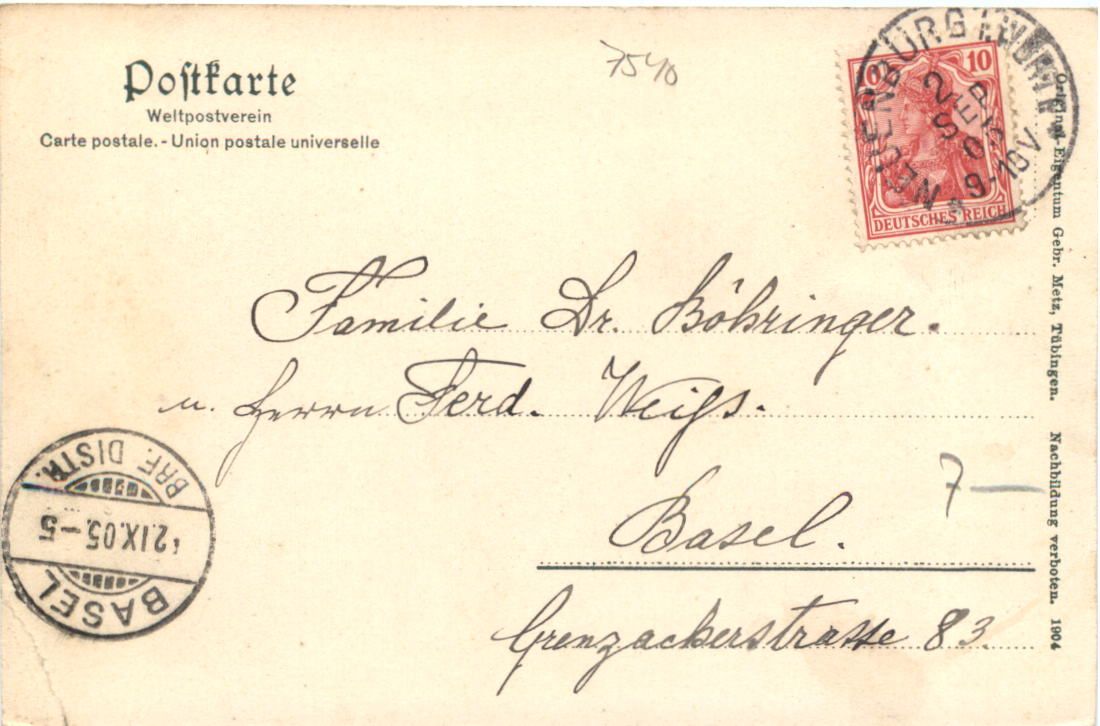 Postkarte
Weltpostverein
Carte postale. - Union postale universelle
7540
10 10
DEUTSCHES REICH
NEUENBÜRG
2 SEP 05
9-10V
Familie Dr. Böhringer.
u. Herrn Ferd. Weiss.
Basel.
Grenzacherstrasse 83.
7 —
BASEL
2.IX.05.-5
BRF. DISTR.
Original-Eigentum Gebr. Metz, Tübingen. Nachbildung verboten. 1904